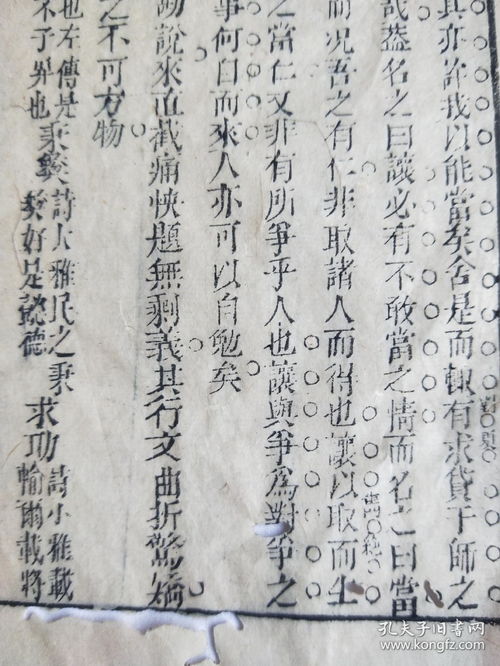 其亦許我以能當矣舍是而輒有求貸于師之
哉蓋名之曰讓必有不敢當之情而名之曰當
而况吾之有仁非取諸人而得也讓以取而生
之當仁又非有所爭乎人也讓與爭為對爭之
爭何自而來人亦可以自勉矣
說來直截痛快題無剩義其行文曲折驚矯
之不可方物
也左傳是秉彝詩大雅民之秉求功詩小雅載
不予畀也彝好是懿德輸爾載將
孔夫子旧书网
www.kongfz.com